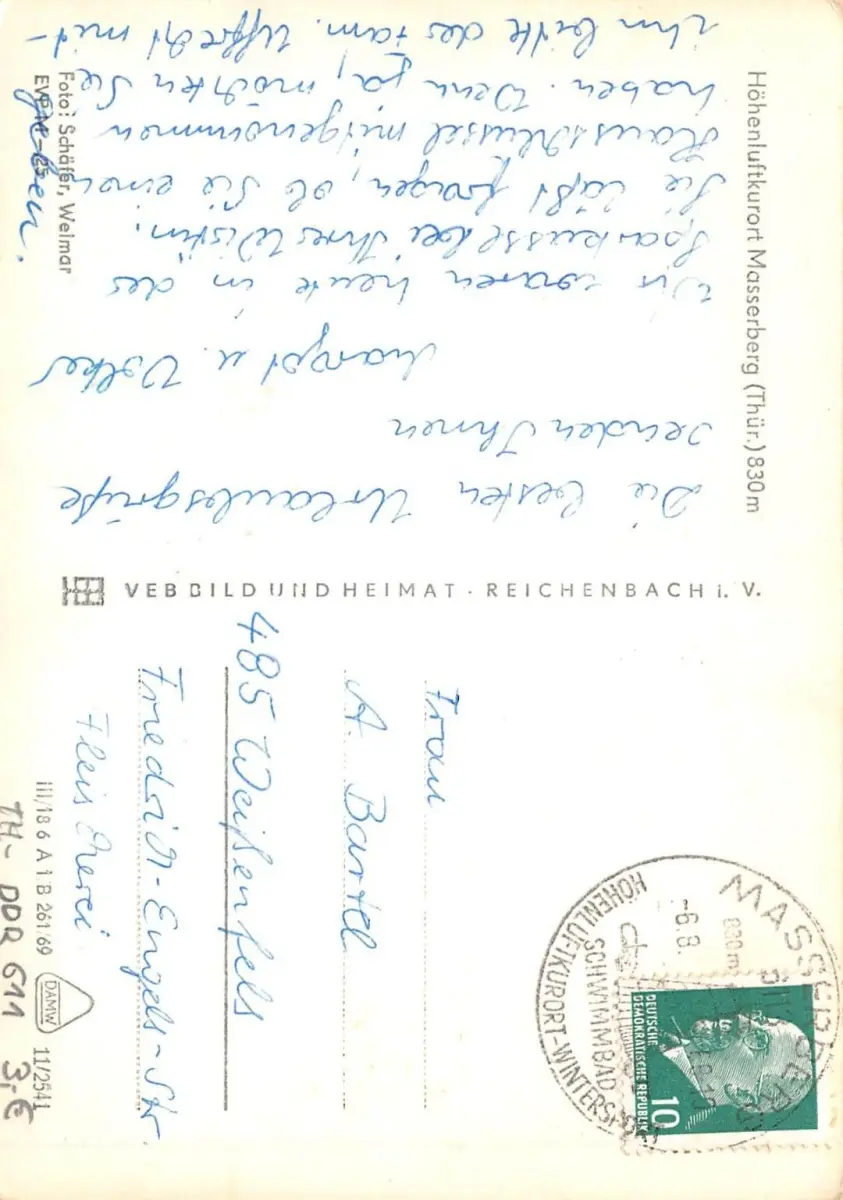 Höhenluftkurort Masserberg (Thür.) 830 m
Die besten Urlaubsgrüße
senden Ihnen
Margot u. Volker
Wir waren heute in der
Sparkasse bei Ihrer Wirtin.
Sie läßt fragen, ob Sie einen
Hausschlüssel mitgenommen
haben. Wenn ja, möchten Sie
ihn bitte der Fam. mit-
geben.
Foto: Schäfer, Weimar
EVP M -.25
VEB BILD UND HEIMAT · REICHENBACH i. V.
MASSERBERG
830m
-6.8.
HÖHENLUFTKURORT-WINTERSPORT
SCHWIMMBAD
DEUTSCHE
DEMOKRATISCHE REPUBLIK
10
Frau
A. Bartel
485 Weißenfels
Friedrich-Engels-Str.
Fleischerei
III/18 6 A 1 B 261/69
DAMW
11/2541
TH- DDR 611 3,-€